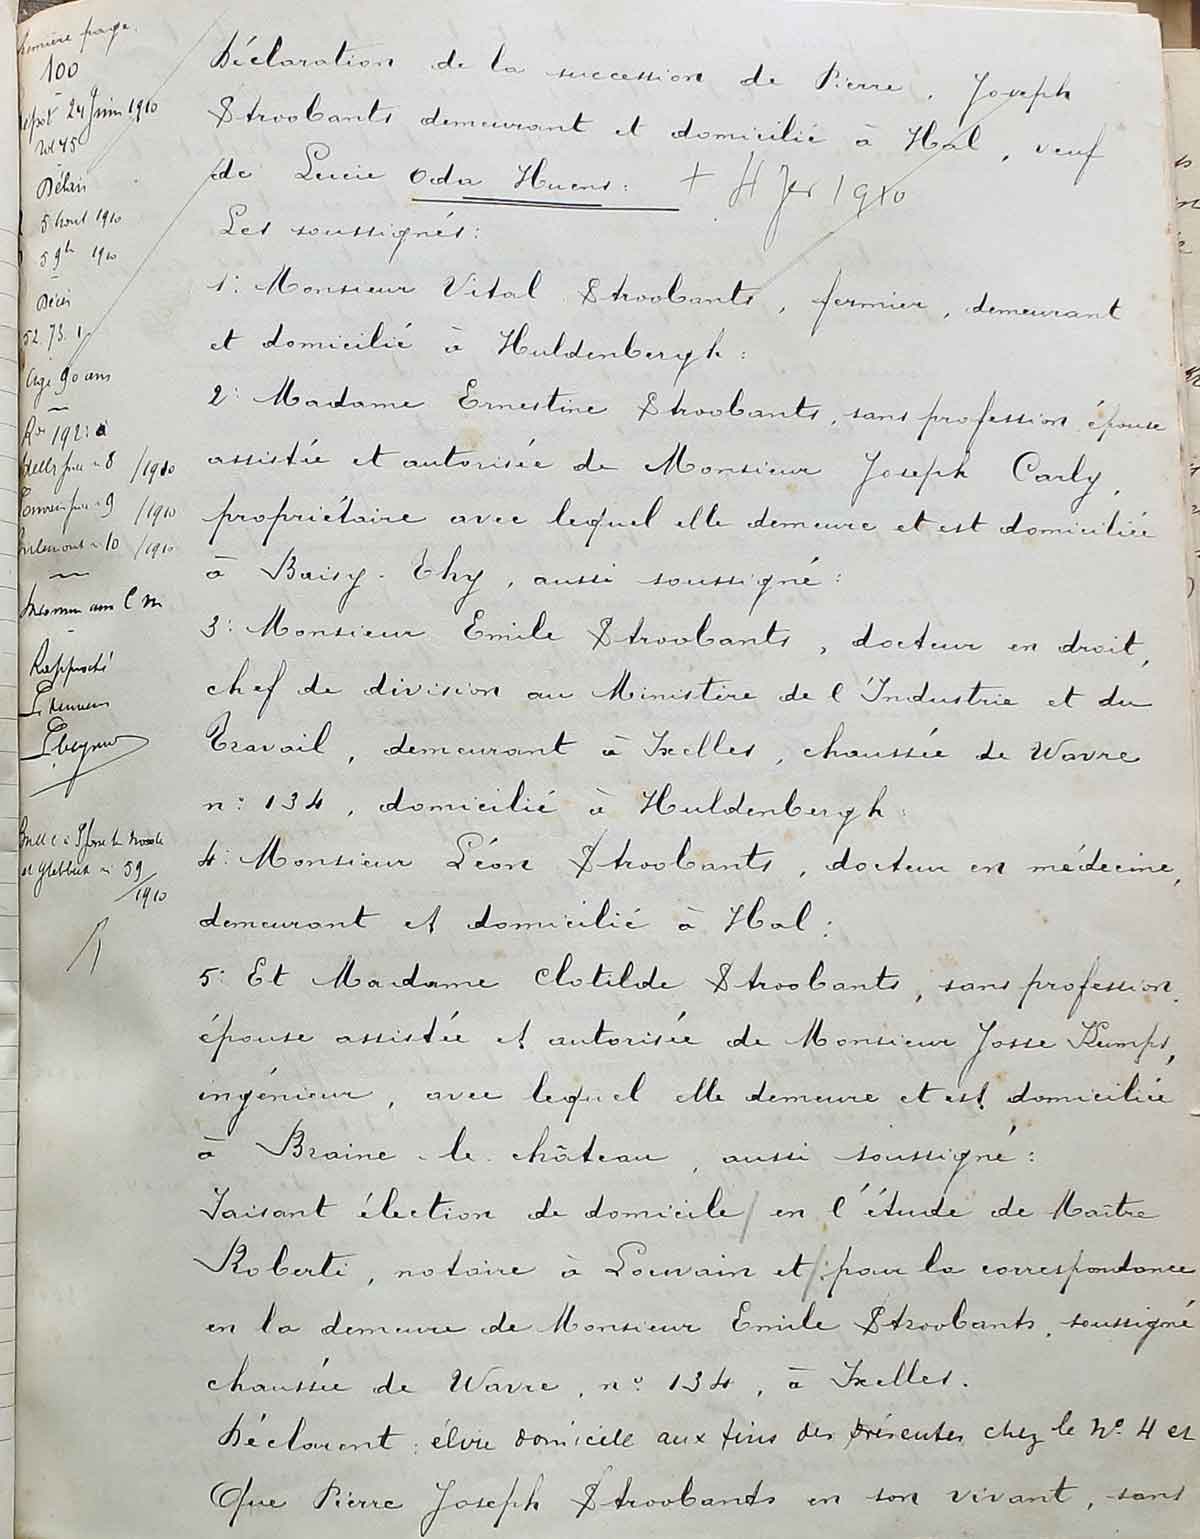 première page.
100
Dépôt 24 Juin 1910
No 45
Délais
5 aout 1910
5 9bre 1910
Décès
52.73.1
Age 90 ans
192
Ixelles 8 /1910
9 /1910
10 /1910
Rapproché
59
/1910
Déclaration de la succession de Pierre, Joseph
Stroobants demeurant et domicilié à Hal, veuf
de Lucie Oda Huens: + 4 Jer 1910
Les soussignés:
1: Monsieur Vital Stroobants, fermier, demeurant
et domicilié à Huldenbergh:
2: Madame Ernestine Stroobants, sans profession épouse
assistée et autorisée de Monsieur Joseph Carly,
propriétaire avec lequel elle demeure et est domiciliée
à Baisy-Thy, aussi soussigné:
3: Monsieur Emile Stroobants, docteur en droit,
chef de division au Ministère de l'Industrie et du
Travail, demeurant à Ixelles, chaussée de Wavre
n: 134, domicilié à Huldenbergh:
4: Monsieur Léon Stroobants, docteur en médecine,
demeurant et domicilié à Hal:
5: Et Madame Clotilde Stroobants, sans profession.
épouse assistée et autorisée de Monsieur Josse Kumps,
ingénieur, avec lequel elle demeure et est domiciliée
à Braine-le-château, aussi soussigné:
Faisant élection de domicile / en l'étude de Maître
Roberti, notaire à Louvain et /: pour la correspondance
en la demeure de Monsieur Emile Stroobants, soussigné
chaussée de Wavre, n: 134, à Ixelles.
Déclarent: élire domicile aux fins des présentes chez le No 4 et
Que Pierre Joseph Stroobants en son vivant, sans